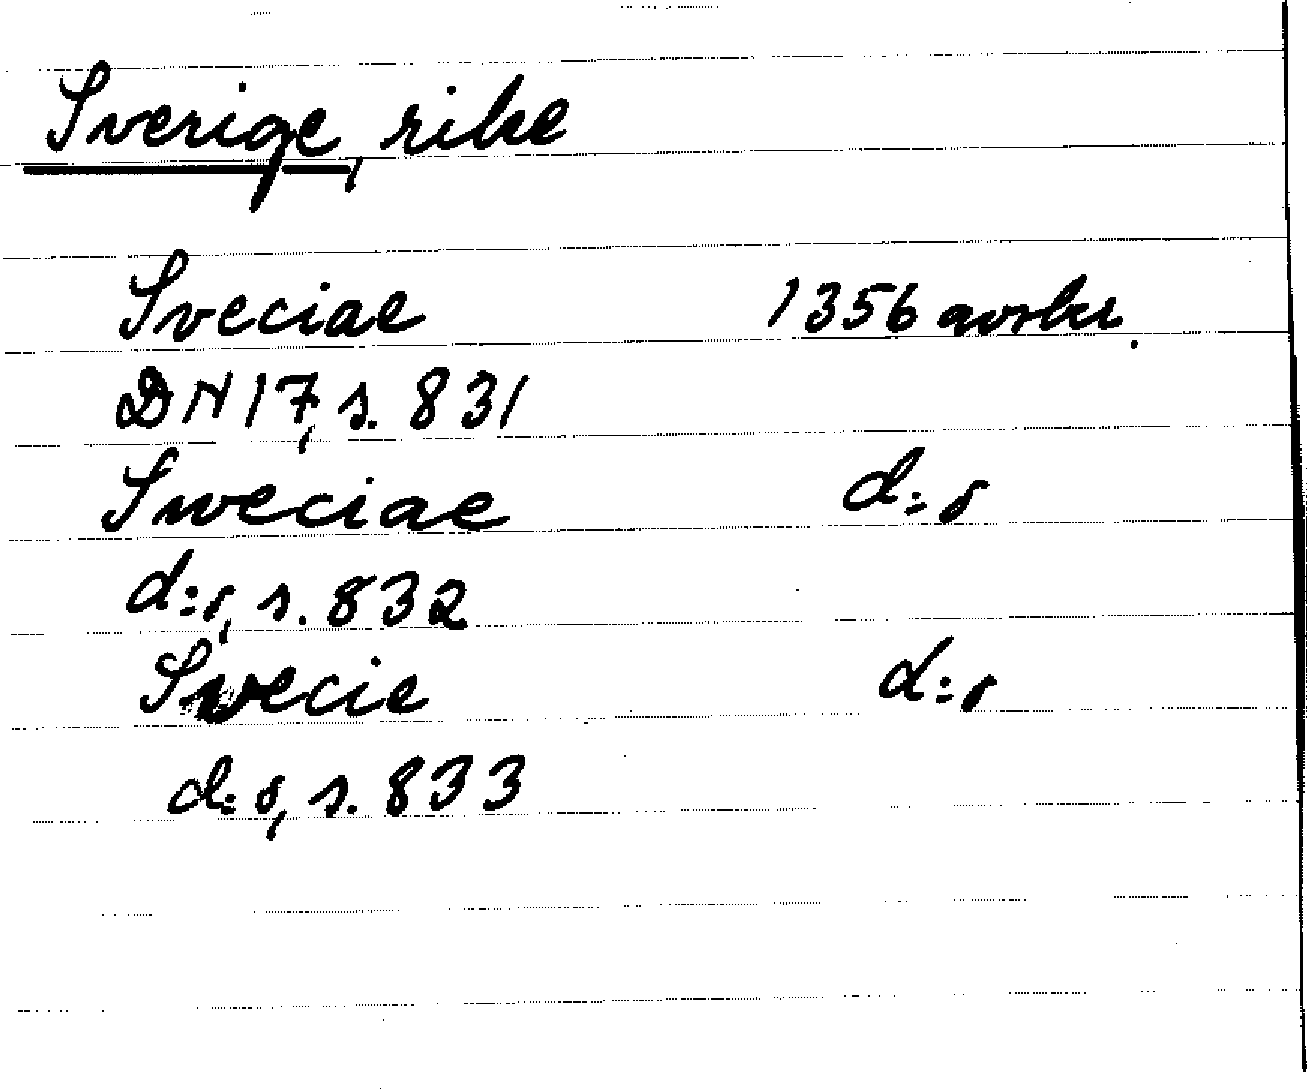 Sverige, rike
Sveciae 1356 avskr.
DN 17, s. 831
Sweciae d:o
d:o, s. 832
Swecie d:o
d:o, s. 833